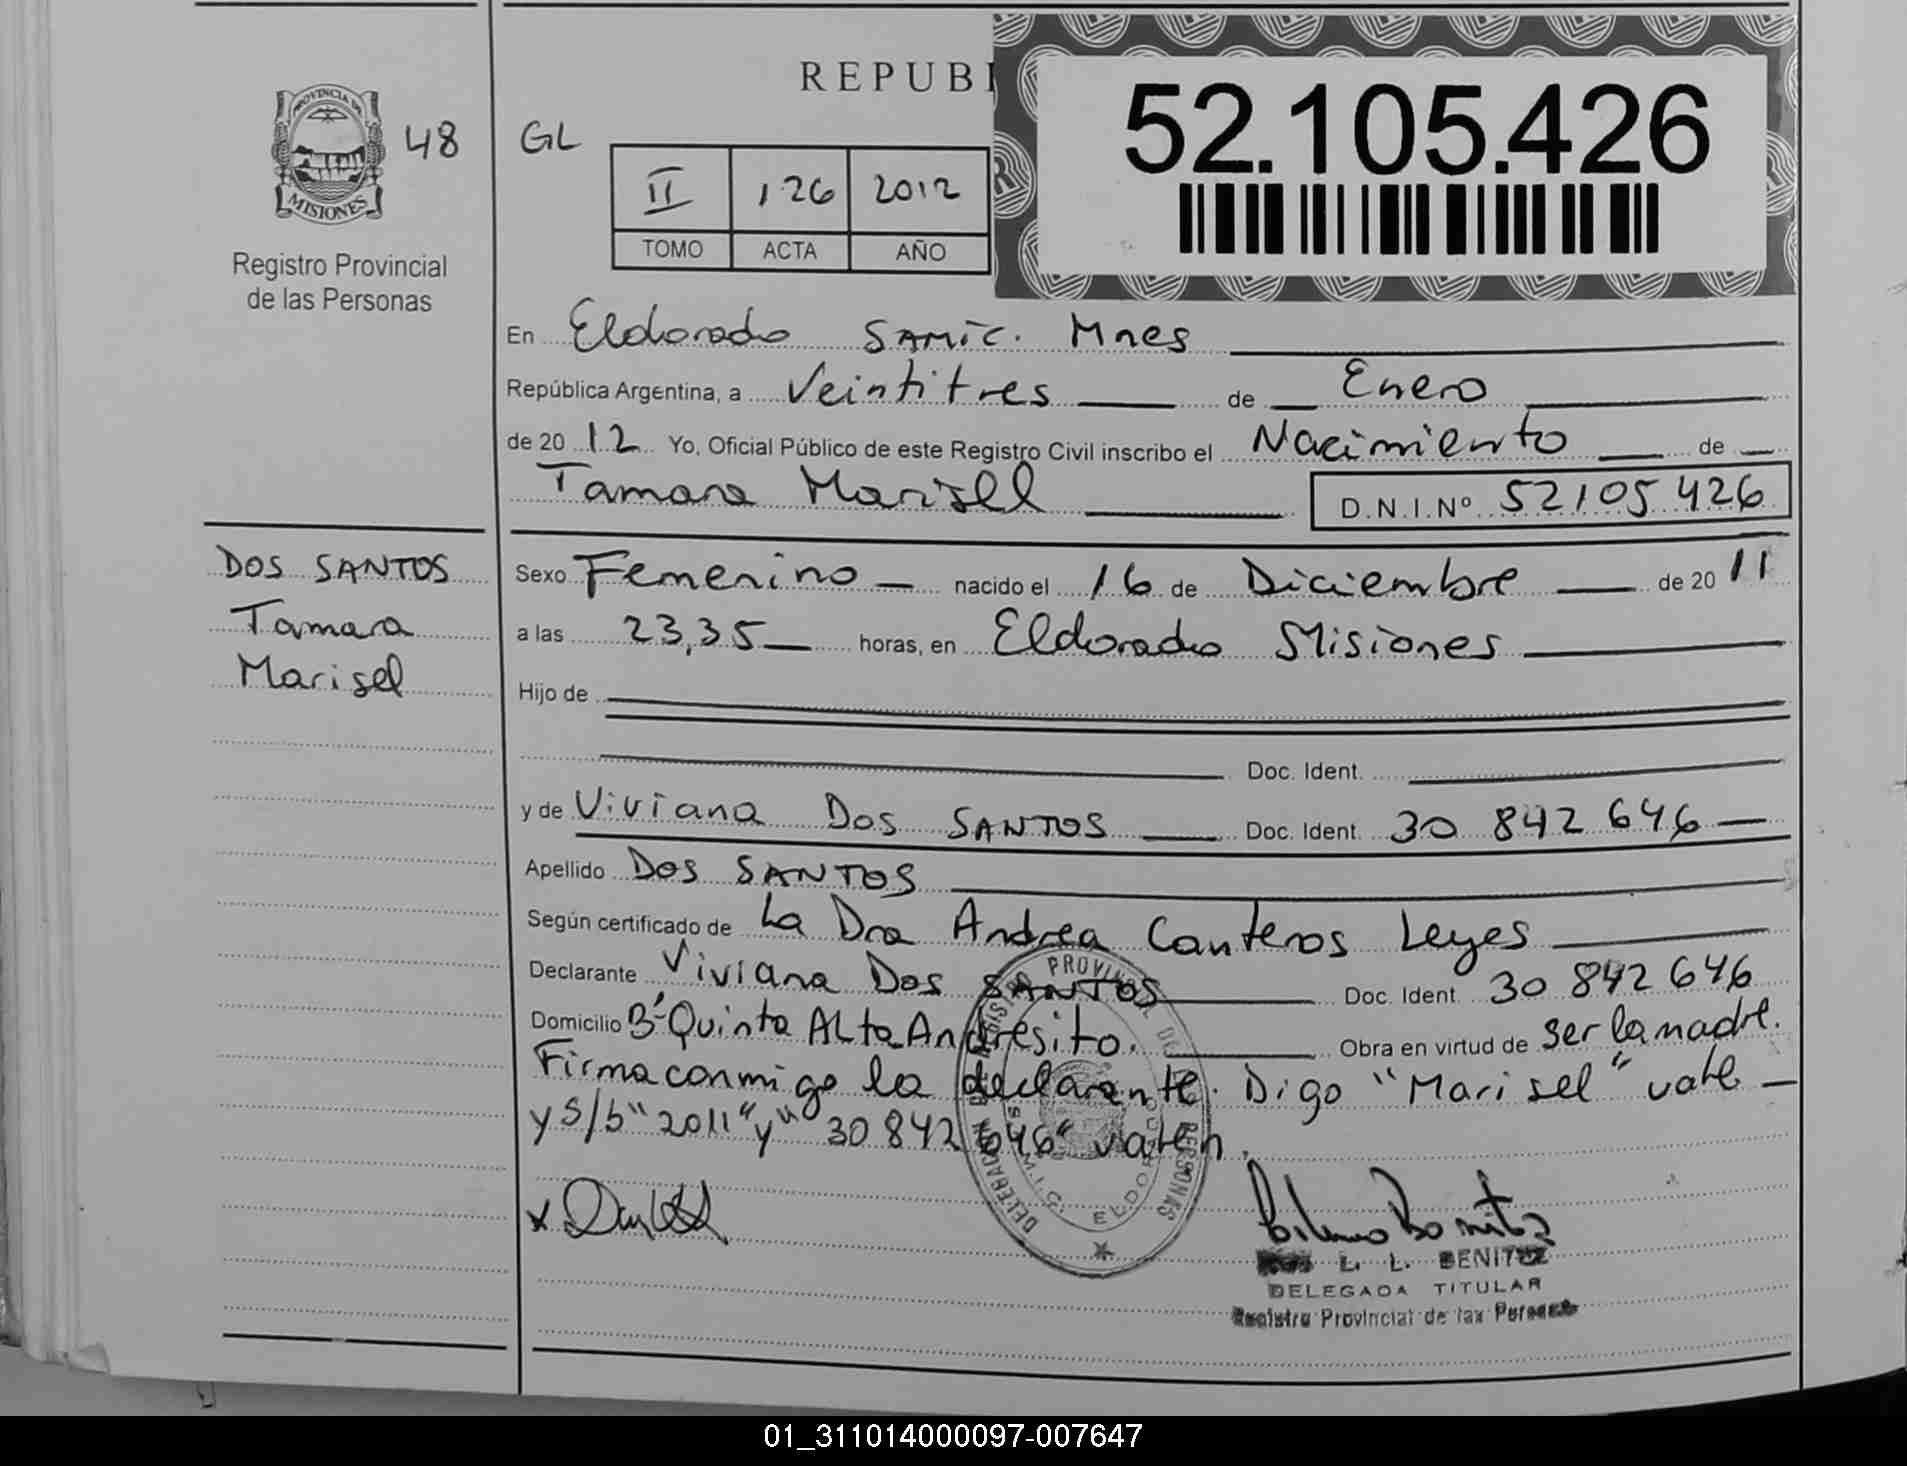 REPUBL
52.105.426
PROVINCIA DE
MISIONES
48
GL
II 126 2012
TOMO ACTA AÑO
Registro Provincial
de las Personas
En Eldorado SAMIC. Mnes
República Argentina, a Veintitres de Enero
de 2012 Yo, Oficial Público de este Registro Civil inscribo el Nacimiento de
Tamara Marisell D.N.I.Nº 52105426
DOS SANTOS
Tamara
Marisel
Sexo Femenino nacido el 16 de Diciembre de 2011
a las 23,35 horas, en Eldorado Misiones
Hijo de
Doc. Ident.
y de Viviana Dos SANTOS Doc. Ident. 30 842 646
Apellido Dos SANTOS
Según certificado de La Dra Andrea Canteros Leyes
Declarante Viviana Dos SANTOS Doc. Ident. 30 842 646
Domicilio Bº Quinta Alta Andresito. Obra en virtud de ser la madre.
Firma conmigo la declarante. Digo "Marisel" vale
y S/b "2011" y "30 842 646" valen.
L. L. BENITEZ
DELEGADA TITULAR
Registro Provincial de las Personas
01_311014000097-007647